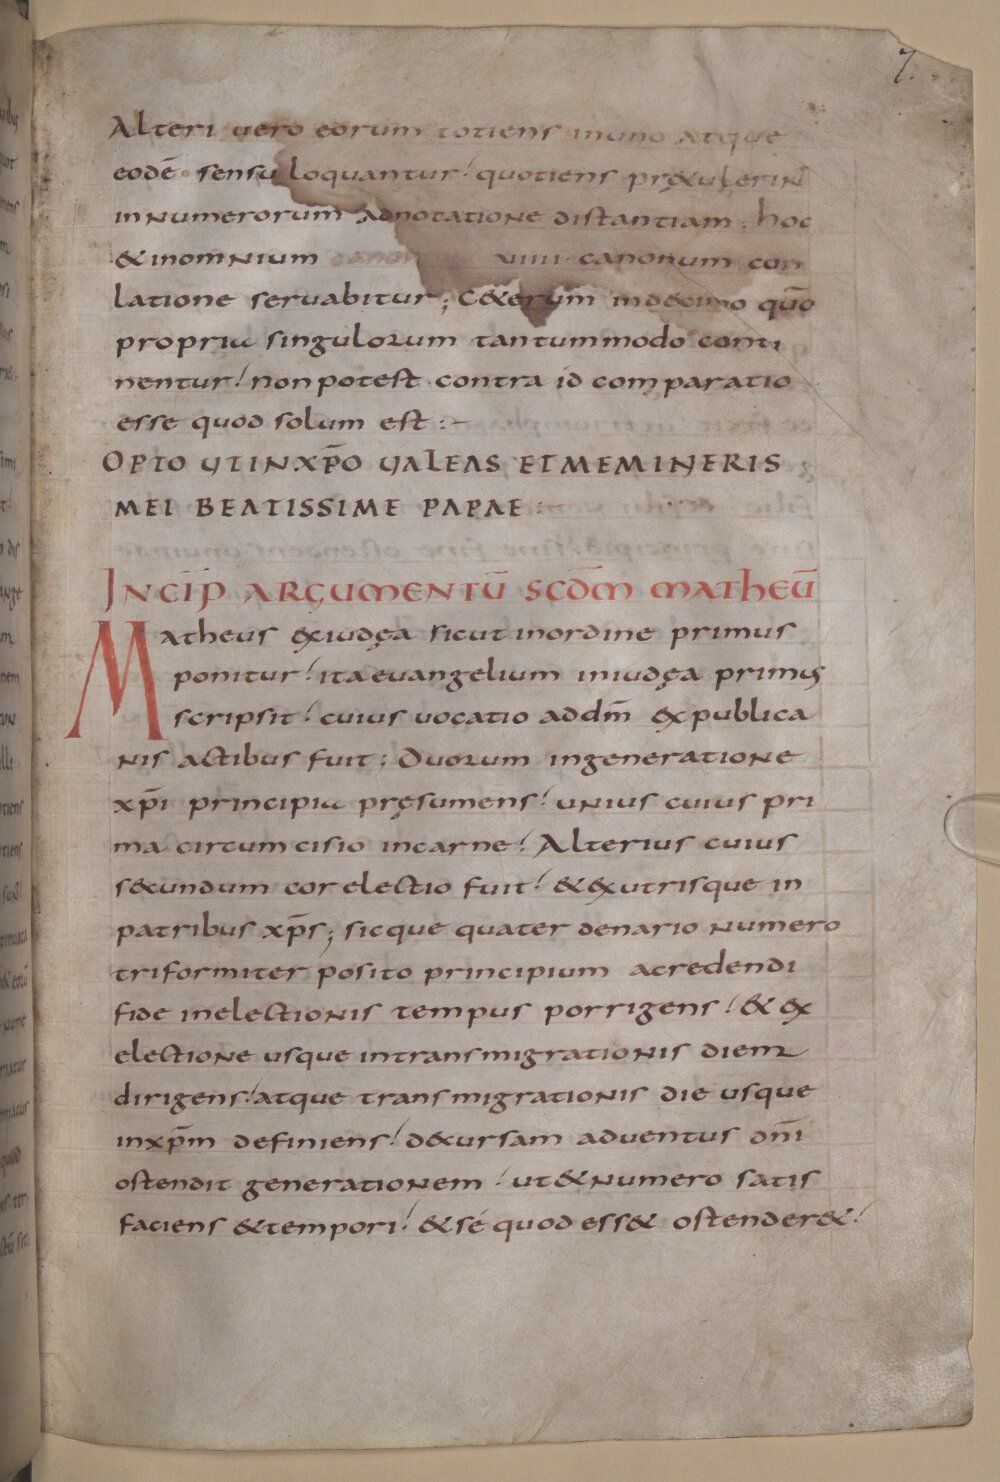 7.
Alteri vero eorum totiens inuno atque
eodē sensu loquantur! quotiens prętulerin
innumerorum adnotatione distantiam. hoc
&inomnium canon viiii canonum con
latione servabitur; C&erum indecimo quō
propria singulorum tantummodo conti
nentur! non potest contra id comparatio
esse quod solum est:–
OPTO UTINXP̄O VALEAS ETMEMINERIS
MEI BEATISSIME PAPAE:
INCIP̄ ARGUMENTŪ SCDM̄ MATHEŪ
Matheus exiudęa sicut inordine primus
ponitur! ita evangelium iniudęa primus
scripsit! cuius vocatio addm̄ ex publica
nis actibus fuit; Duorum ingeneratione
xp̄i principia pręsumens! unius cuius pri
ma circumcisio incarne! Alterius cuius
s&undum cor electio fuit! & exutrisque in
patribus xp̄s; sicque quater denario numero
triformiter posito principium acredendi
fide inelectionis tempus porrigens! & ex
electione usque intransmigrationis diem
dirigens! atque transmigrationis die usque
inxp̄m definiens! decursam adventus dn̄i
ostendit generationem! ut&numero satis
faciens &tempori! &sé quod ess& ostender&!